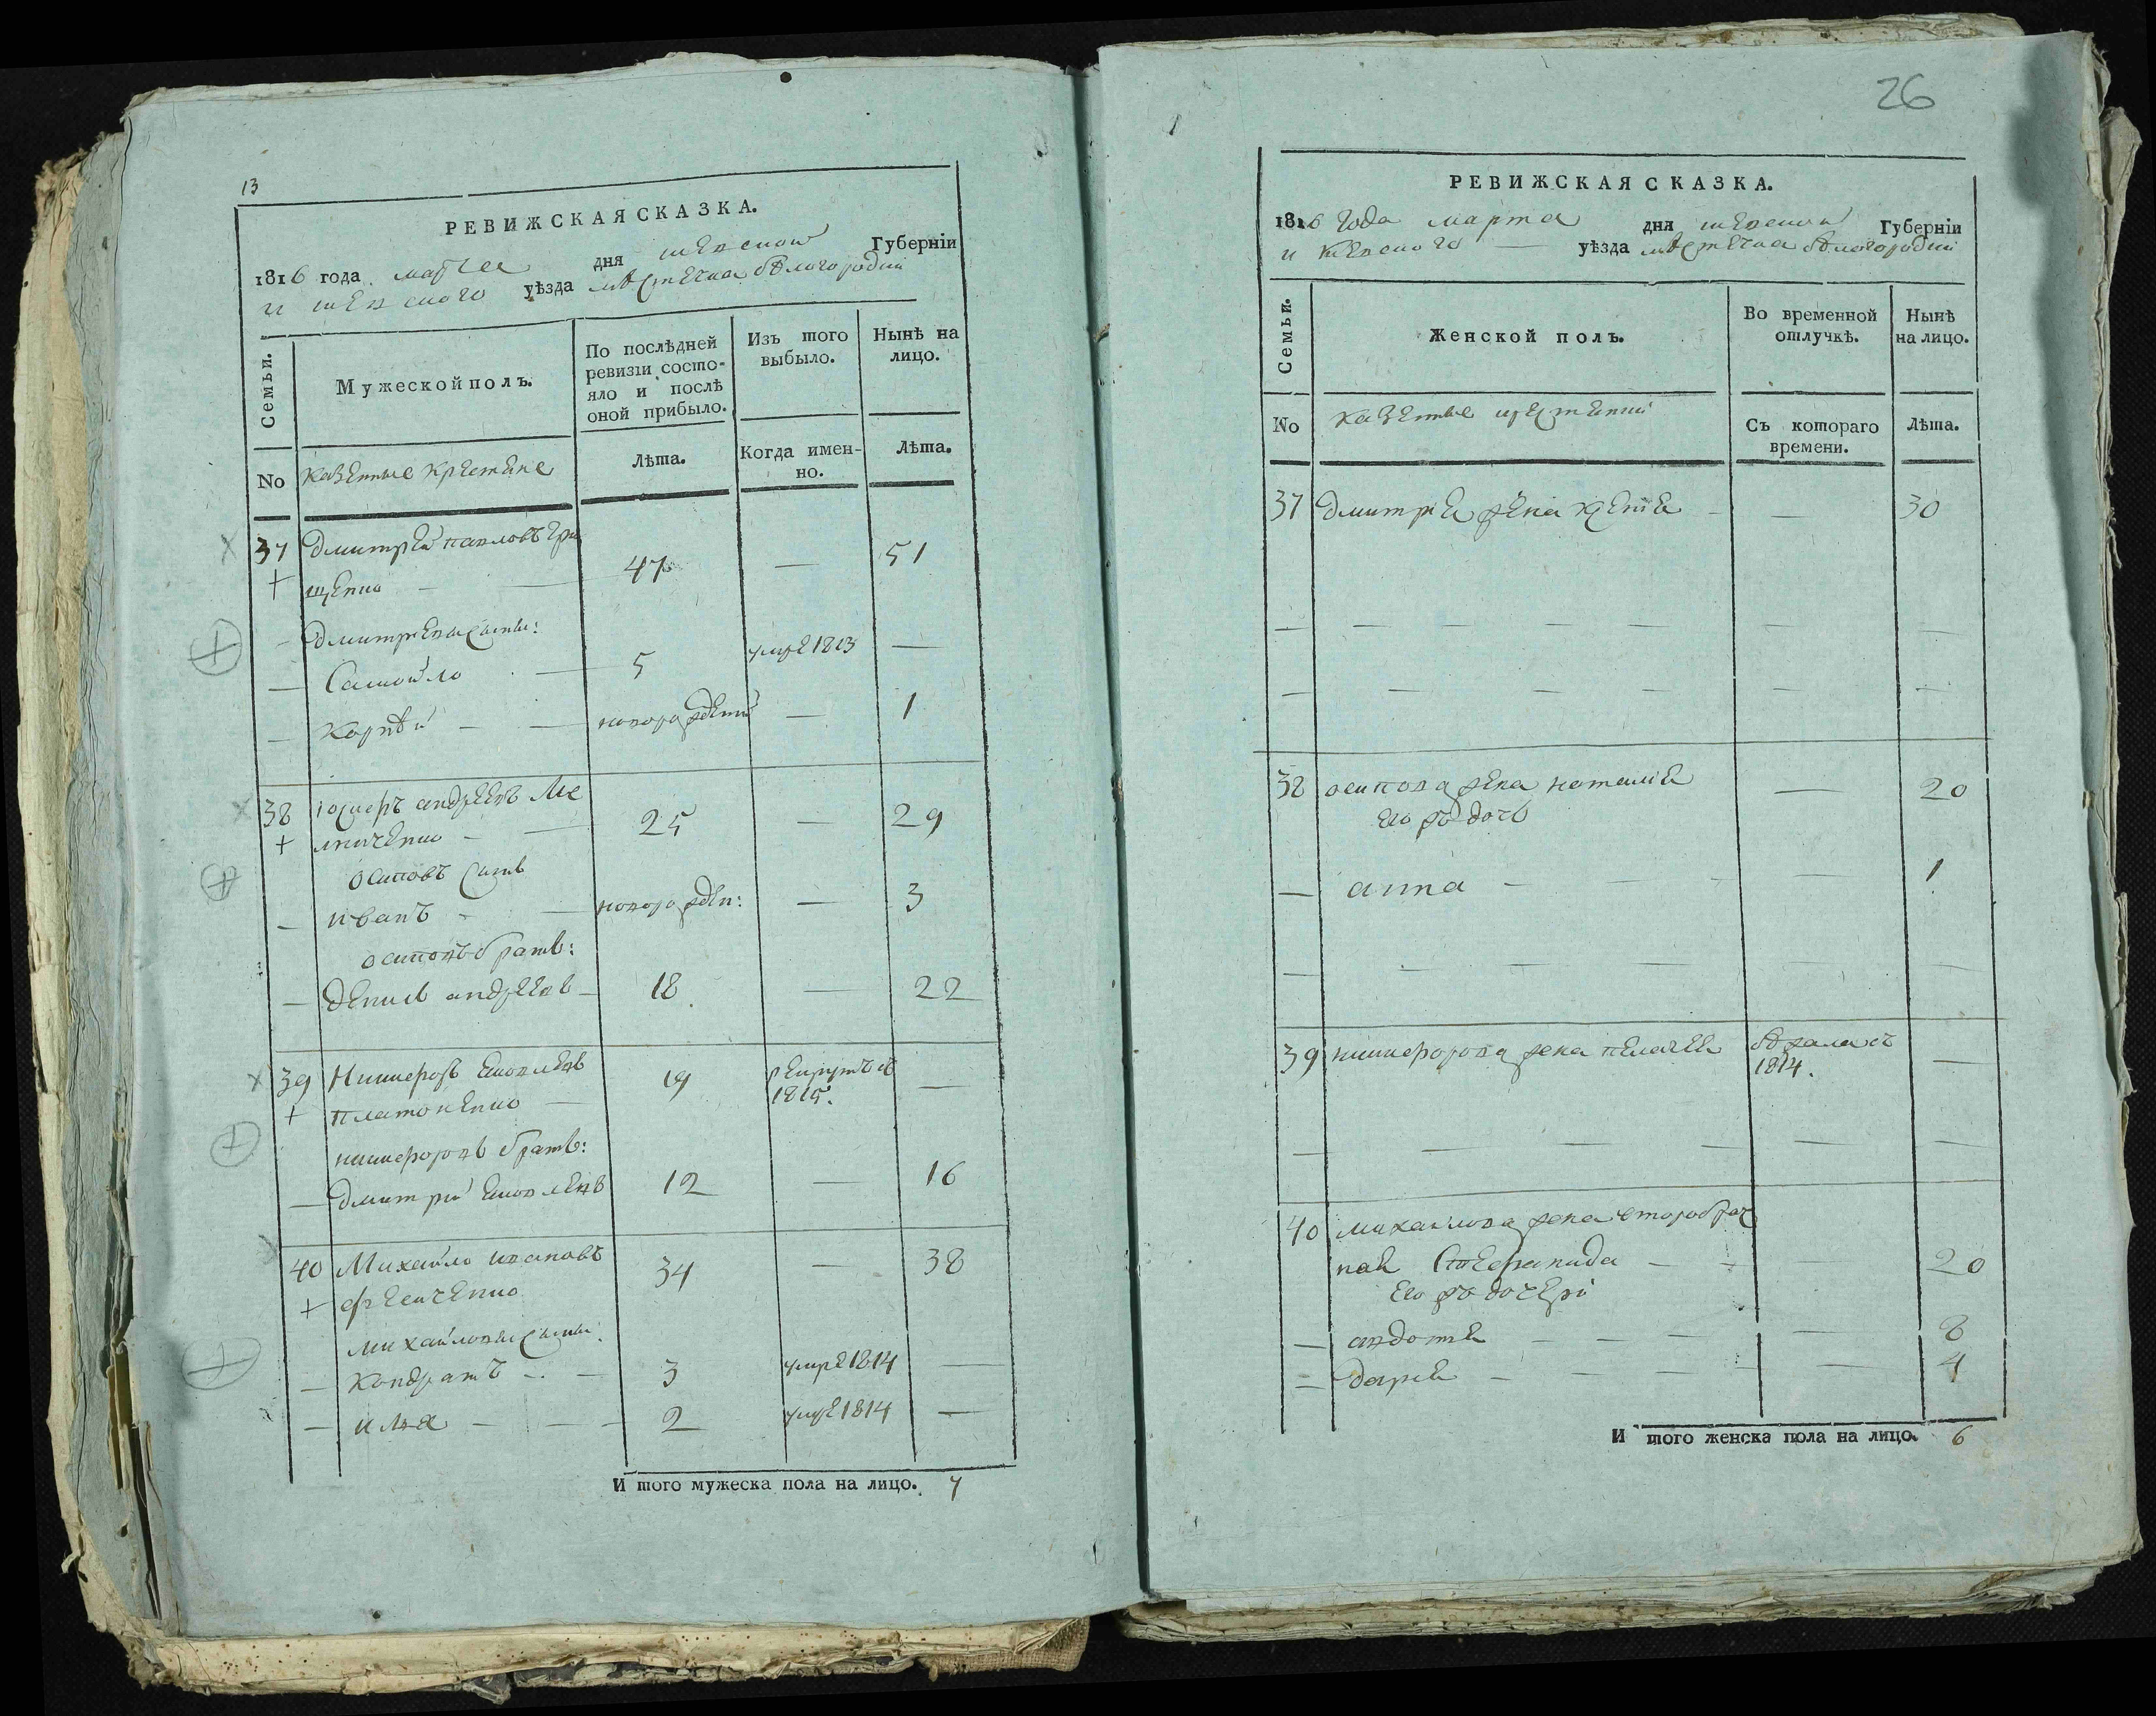 13
РЕВИЖСКАЯ СКАЗКА.
1816 года марта дня Киевской Губерніи
и Киевского уѣзда мѣстечка бѣлогородки
Семьи.
Мужеской полъ.
По послѣдней ревизіи состо-
яло и послѣ
оной прибыло.
Изъ того
выбыло.
Нынѣ на
лицо.
No
казенные крестяне
Лѣта.
Когда имен-
но.
Лѣта.
37 Дмитрей павловъ гри
щенко 47 — 51
Дмитреевы сыны:
Самойло 5 умре 1813 —
Карпѣй новорожденый — 1
38 андреевъ Ме
лниченко 25 — 29
осиповъ сынъ
иванъ новорожден: — 3
осиповъ братъ:
денисъ андреевъ 18 — 22
39 Никифоръ Яковлевъ
платоненко 19 рекрутъ съ
1815. —
никифоровъ братъ:
дмитрий Яковлевъ 12 — 16
40 Михайло ивановъ
34 — 38
михайловы сыны:
Кондратъ 3 умре 1814 —
илья 2 умре 1814 —
И того мужеска пола на лицо. 7
26
РЕВИЖСКАЯ СКАЗКА.
1816 года марта дня Киевской Губерніи
и Киевского уѣзда мѣстечка бѣлогородки
Семьи.
Женской полъ.
Во временной
отлучкѣ.
Нынѣ
на лицо.
No
казенные крестянки
Съ котораго
времени.
Лѣта.
37 дмитрея жена — 30
38 осипова жена наталия — 20
его жъ дочь
анна — 1
39 никифорова жена пелагея бѣжала съ
1814. —
40 михайлова жена второбрач
ная Стефанида — 20
его жъ дочери
авдотя — 8
дария — 4
И того женска пола на лицо. 6